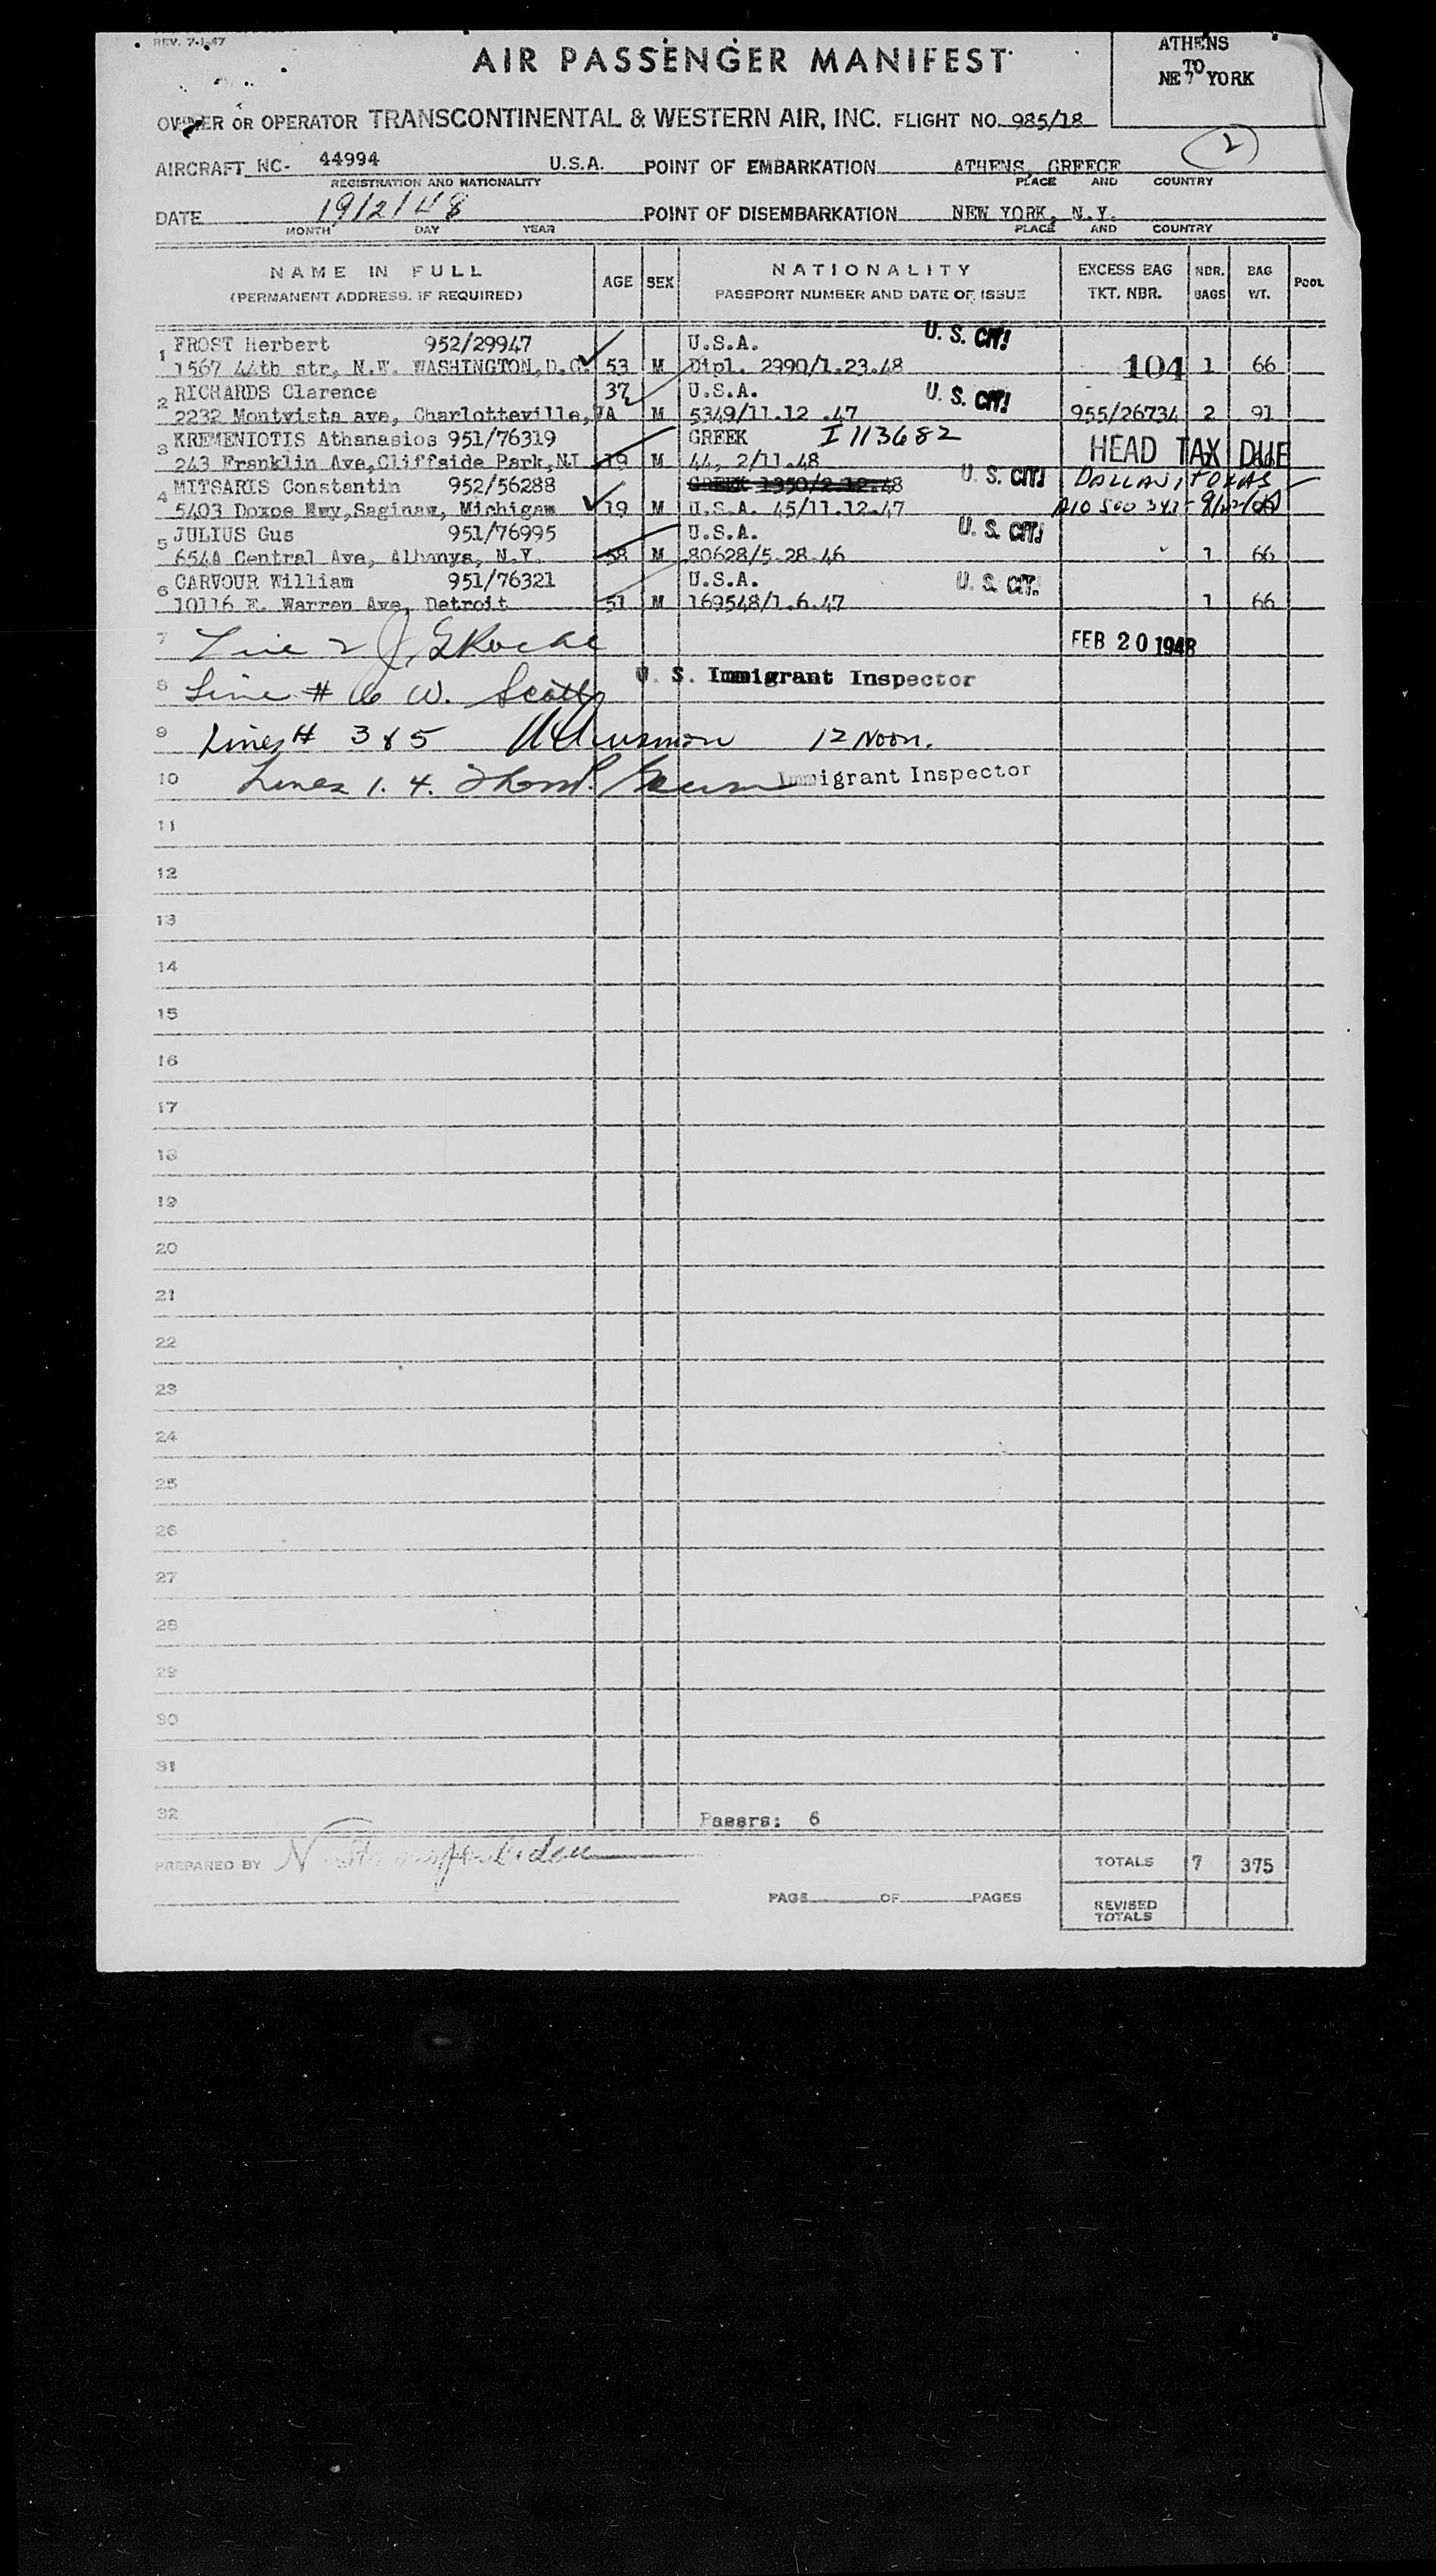 REV. 7-1-47
AIR PASSENGER MANIFEST
ATHENS
TO
NEW YORK
OWNER OR OPERATOR TRANSCONTINENTAL & WESTERN AIR, INC. FLIGHT NO. 985/18
2
AIRCRAFT NC- 44994 U.S.A. POINT OF EMBARKATION ATHENS, GREECE
REGISTRATION AND NATIONALITY PLACE AND COUNTRY
DATE 19/2/48 POINT OF DISEMBARKATION NEW YORK, N.Y.
MONTH DAY YEAR PLACE AND COUNTRY
NAME IN FULL AGE SEX NATIONALITY EXCESS BAG NBR. BAG POOL
(PERMANENT ADDRESS, IF REQUIRED) PASSPORT NUMBER AND DATE OF ISSUE TKT. NBR. BAGS WT.
1 FROST Herbert 952/29947 U.S.A. U. S. CIT!
1567 44th str, N.W. WASHINGTON, D.C. 53 M Dipl. 2990/1.23.48 104 1 66
2 RICHARDS Clarence 37 U.S.A. U. S. CIT!
2232 Montvista ave, Charlotteville, VA M 5349/11.12 .47 955/26734 2 91
3 KREMENIOTIS Athanasios 951/76319 GREEK I 113682 HEAD TAX DUE
243 Franklin Ave,Cliffside Park,NJ 19 M 44, 2/11.48
4 MITSARIS Constantin 952/56288 GREEK 1950/2.12.48 U. S. CIT! DALLAS, TEXAS
5403 Doxoe Hwy,Saginaw, Michigam 19 M U.S.A. 45/11.12.47 A10 500
5 JULIUS Gus 951/76995 U.S.A. U. S. CIT!
654A Central Ave, Albanys, N.Y. 58 M 80628/5.28.46 1 66
6 CARVOUR William 951/76321 U.S.A. U. S. CIT.
10116 E. Warren Ave, Detroit 51 M 169548/1.6.47 1 66
7 Line 2 FEB 20 1948
8 Line # 6 W. Scott U. S. Immigrant Inspector
9 Lines # 3 & 5 12 Noon.
10 Lines 1. 4. Immigrant Inspector
11
12
13
14
15
16
17
18
19
20
21
22
23
24
25
26
27
28
29
30
31
32 Passrs: 6
PREPARED BY TOTALS 7 375
PAGE OF PAGES REVISED
TOTALS